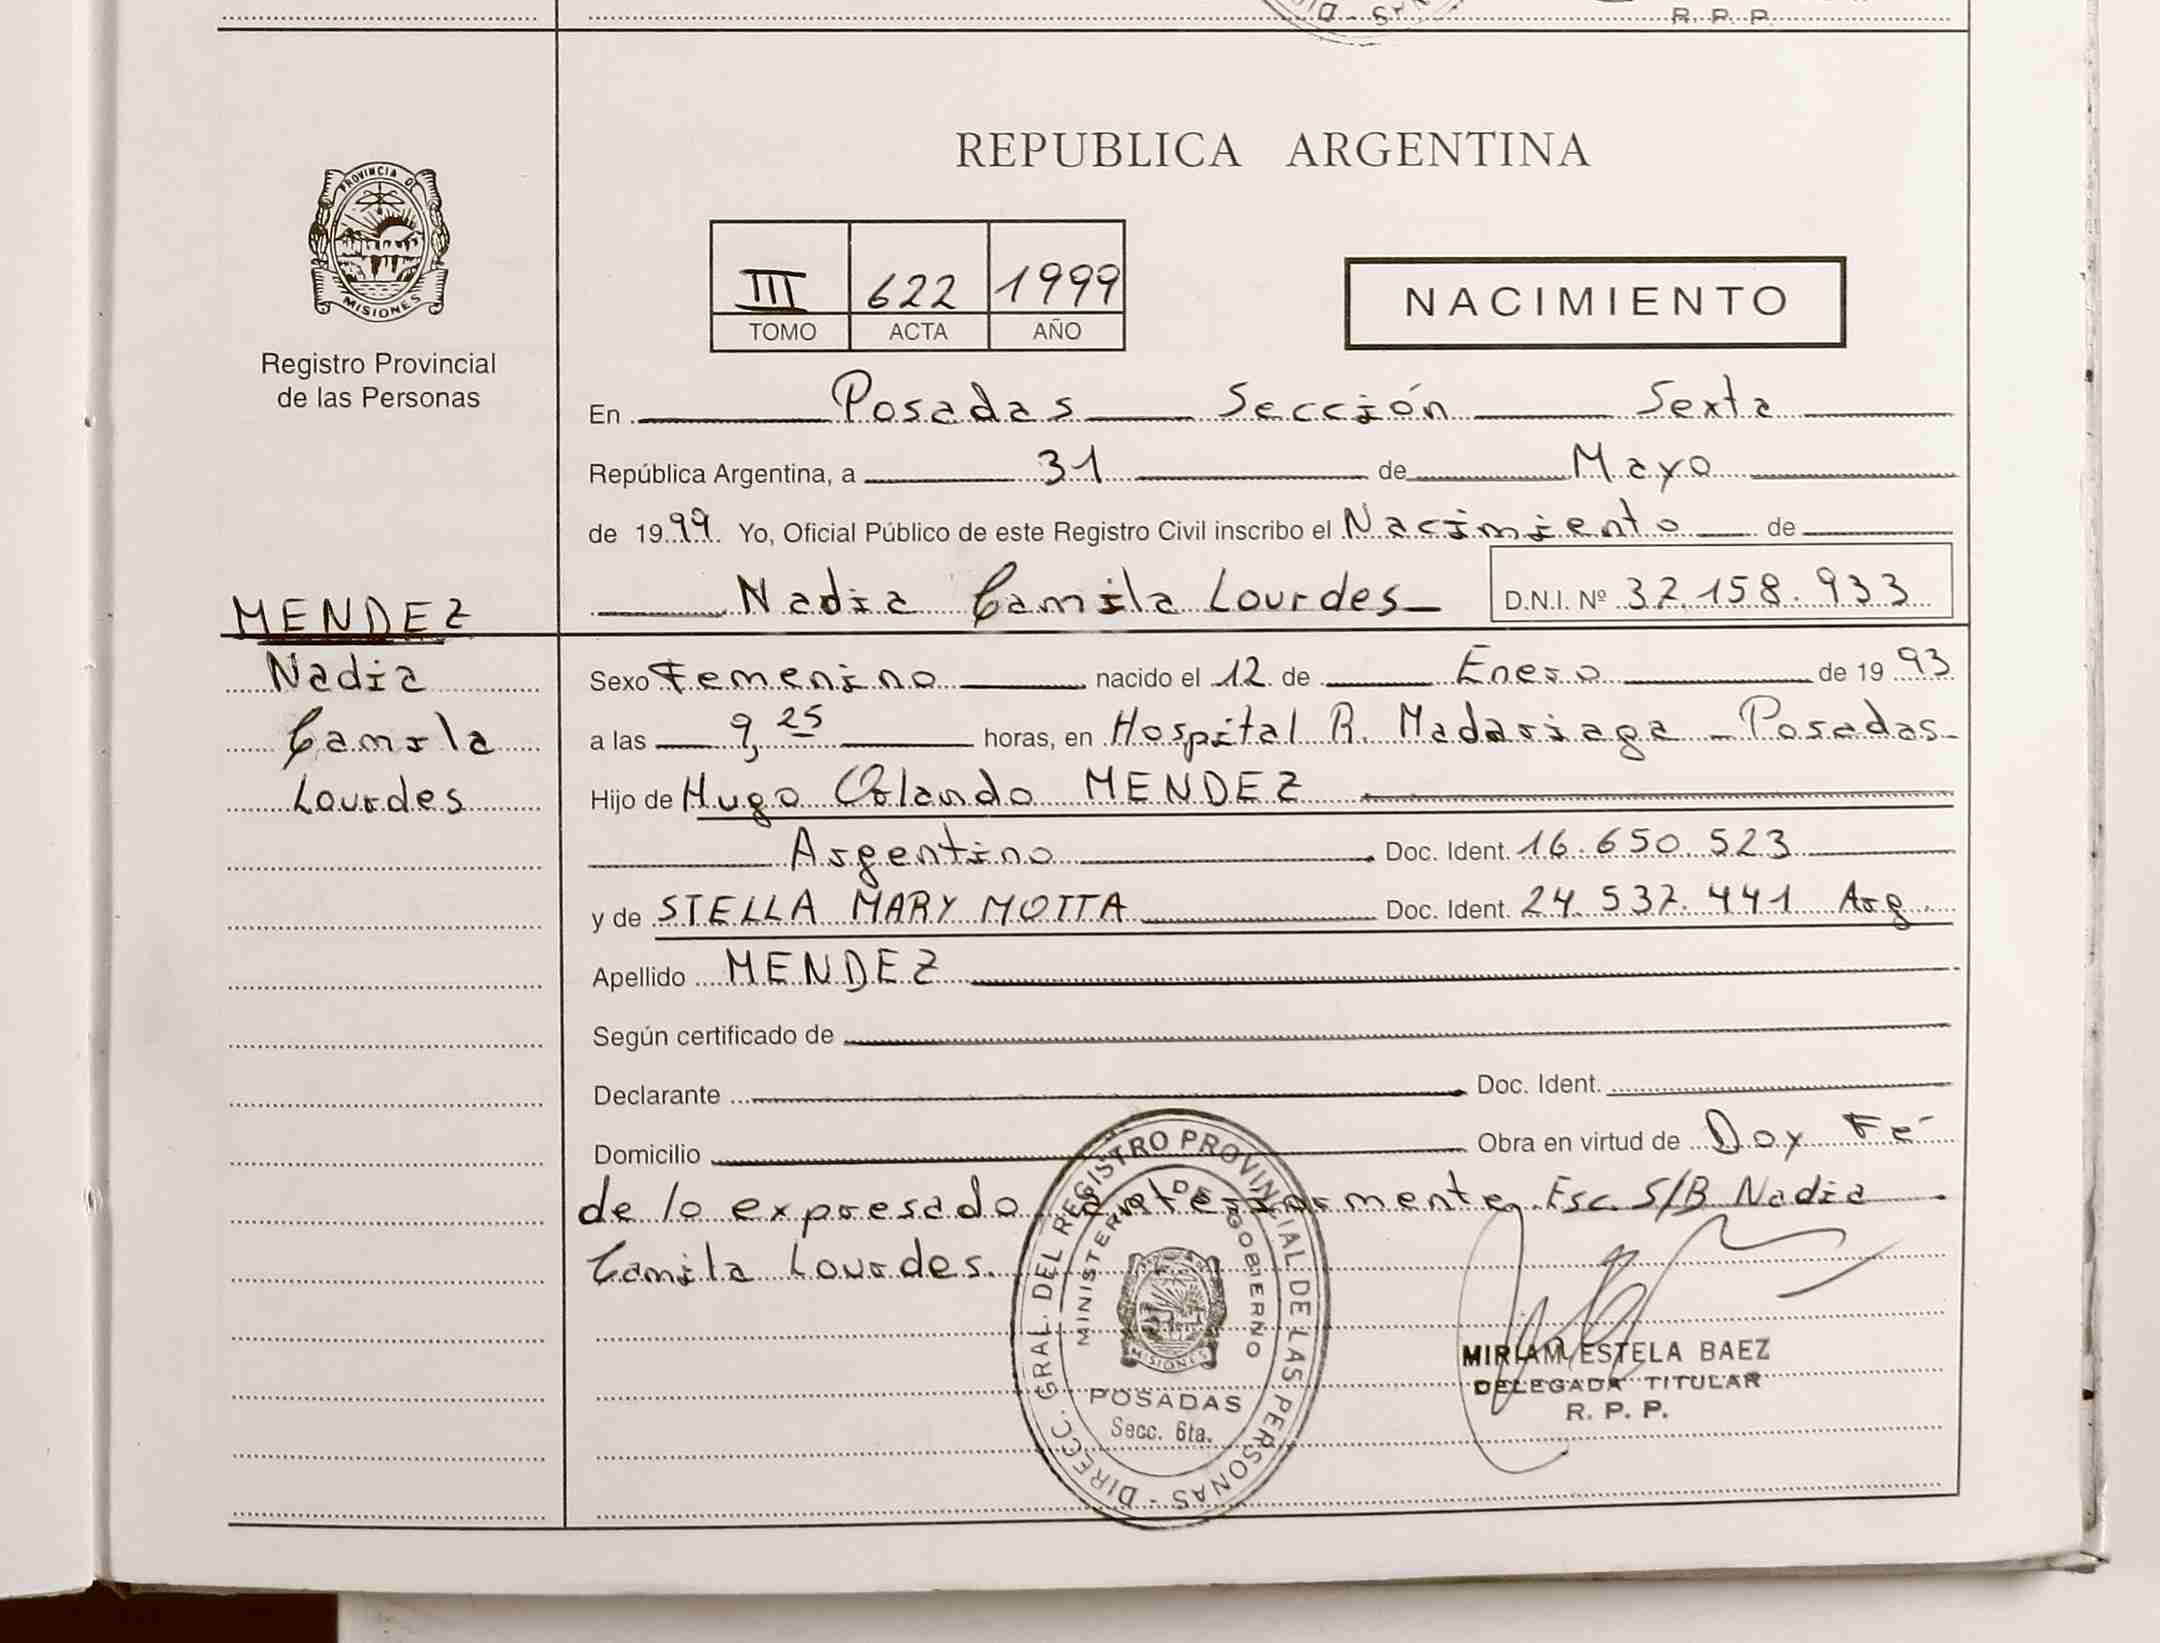 R. P. P.
PROVINCIA DE
MISIONES
Registro Provincial
de las Personas
REPUBLICA ARGENTINA
III 622 1999
TOMO ACTA AÑO
NACIMIENTO
En Posadas Sección Sexta
República Argentina, a 31 de Mayo
de 1999. Yo, Oficial Público de este Registro Civil inscribo el Nacimiento de
Nadia Camila Lourdes D.N.I. Nº 37.158.933
MENDEZ
Nadia
Camila
Lourdes
Sexo Femenino nacido el 12 de Enero de 1993
a las 9,25 horas, en Hospital R. Madariaga - Posadas-
Hijo de Hugo Orlando MENDEZ
Argentino Doc. Ident. 16.650.523
y de STELLA MARY MOTTA Doc. Ident. 24.537.441 Arg.
Apellido MENDEZ
Según certificado de
Declarante Doc. Ident.
Domicilio Obra en virtud de Doy Fe
de lo expresado anteriormente. Esc. S/B Nadia
Camila Lourdes.
DIRECC. GRAL. DEL REGISTRO PROVINCIAL DE LAS PERSONAS -
MINISTERIO DE GOBIERNO
MISIONES
POSADAS
Secc. 6ta.
MIRIAM ESTELA BAEZ
DELEGADA TITULAR
R. P. P.